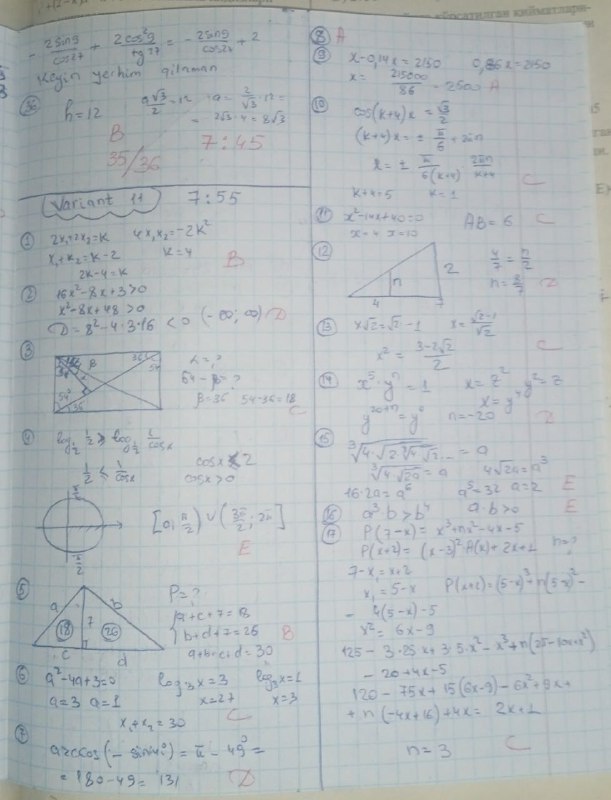 - 2sin9/cos27 + 2cos²9/tg27 = - 2sin9/cos27 + 2
Keyin yechim qilaman
36 h=12 a√3/2=12 a=2/√3·12=
= 2√3·4=8√3
B
35/36 7:45
Variant 11 7:55
1 2x₁+2x₂=k 4x₁x₂=-2k²
x₁+x₂=k-2 k=4
2k-4=k B
2 16x²-8x+3>0
x²-8x+48>0
D=8²-4·3·16 <0 (-∞; ∞) D
3 36 54
β=36 54-36=18
54 36 C
4 log½ ½ ≥ log½ 1/cosx
½ ≤ 1/cosx cosx≤2
cosx>0
π/2
[0; π/2) ∪ (3π/2; 2π]
E
5 P=?
a b a+c+7=18
18 7 26 b+d+7=26 B
c d a+b+c+d=30
6 a²-4a+3=0 log₃x=3 log₃x=1
a=3 a=1 x=27 x=3
x₁+x₂=30 C
7 arccos(-sin41°)=π-49°=
=180-49=131 D
8 A
9 x-0,14x=2150 0,86x=2150
x=215000/86=2500 A
10 cos(k+4)x=√3/2
(k+4)x=±π/6+2πn
x=±π/6(k+4) 2πn/k+4
k+4=5 k=1 C
11 x²-14x+40=0 AB=6 C
x=4 x=10
12 4/7=n/2
n 2 n=8/7
4 7 D
13 x√2=√2-1 x=√2-1/√2
x²=3-2√2/2 C
14 x⁵·yⁿ=1 x=z² y²=z
x=y⁴
y²⁰⁺ⁿ=y⁰ n=-20 D
15 ∛4·√2·∛4√2... =a
∛4√2a=a 4√2a=a³
16·2a=a⁶ a⁵=32 a=2 E
16 a³·b>b⁴ a·b>0 E
17 P(7-x)=x³+nx²-4x-5
P(x+2)=(x-3)²·A(x)+2x+1 n=?
7-x₁=x+2
x₁=5-x P(x+2)=(5-x)³+n(5-x)²-
- 4(5-x)-5
x²=6x-9
125-3·25x+3·5·x²-x³+n(25-10x+x²)
-20+4x-5
120-75x+15(6x-9)-6x²+9x+
+n(-4x+16)+4x=2x+1
n=3 C